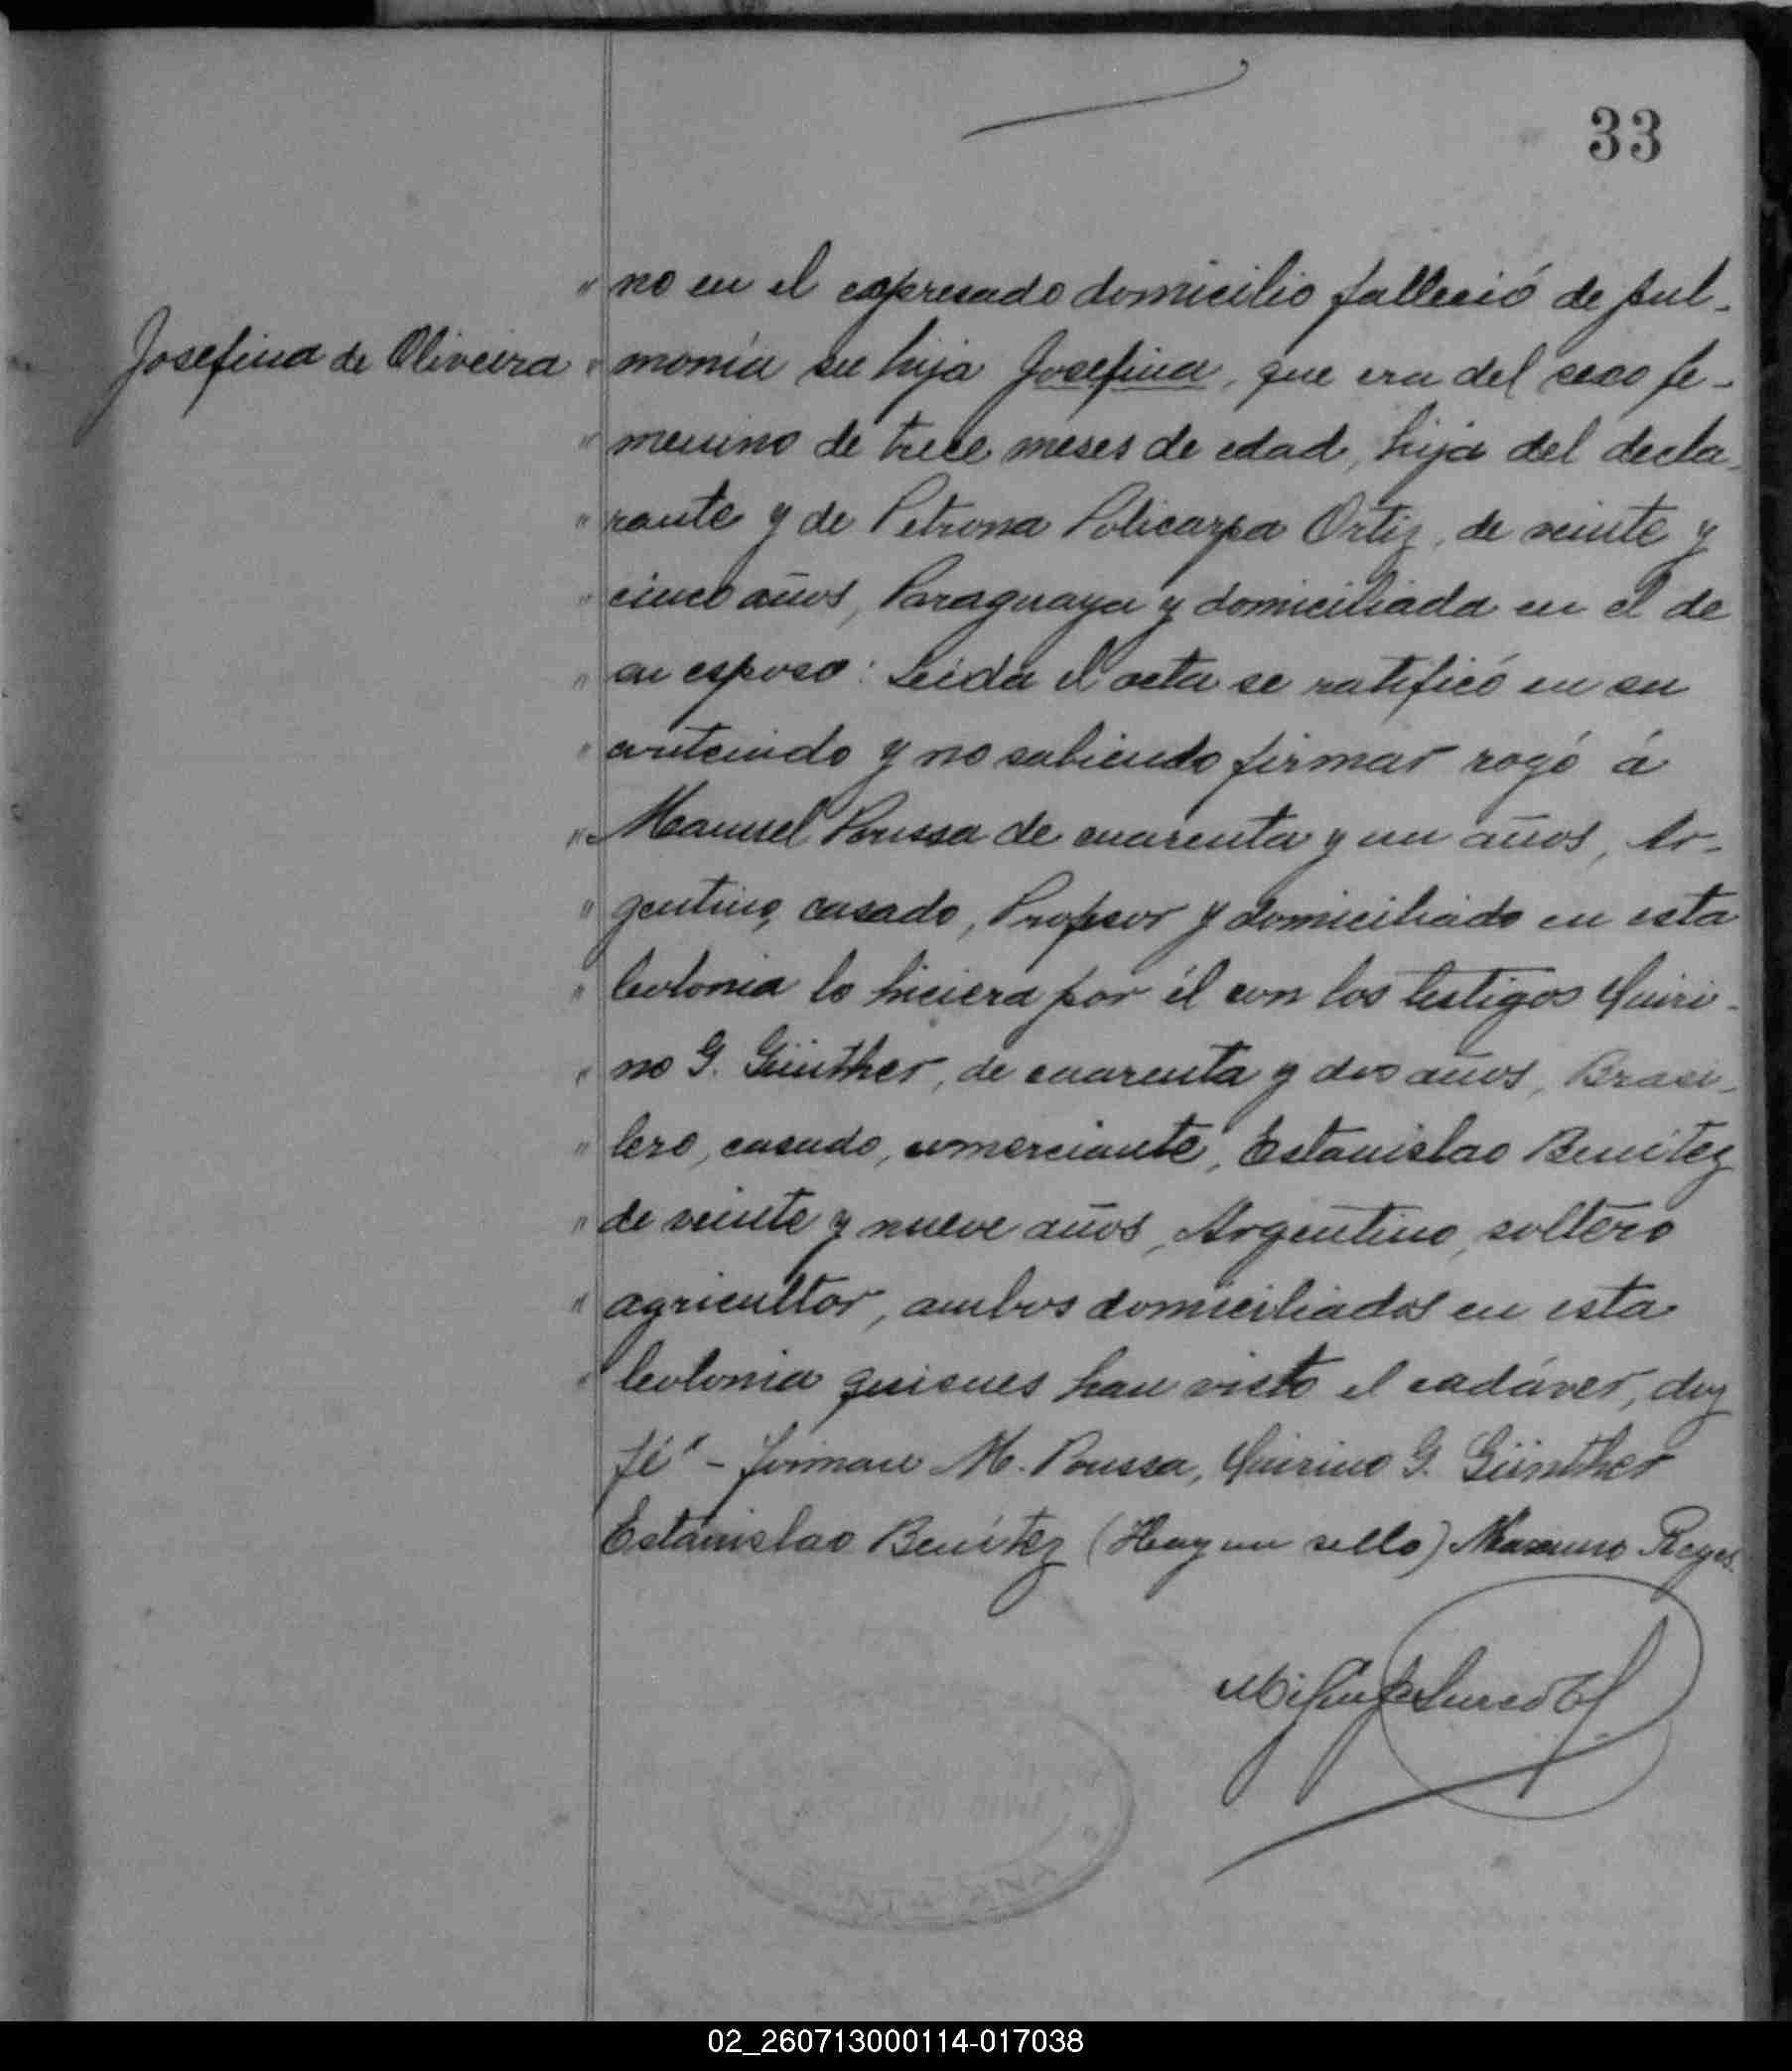 33
" no en el expresado domicilio falleció de pul-
Josefina de Oliveira " monía su hija Josefina, que era del sexo fe-
" menino de trece meses de edad, hija del decla-
" rante y de Petrona Policarpa Ortiz, de veinte y
" cinco años, Paraguaya y domiciliada en el de
" su esposo: Leida el acta se ratificó en su
" contenido y no sabiendo firmar rogó á
" Manuel Poussa de cuarenta y un años, Ar-
" gentino, casado, Profesor y domiciliado en esta
" Colonia lo hiciera por él con los testigos Quiri-
" no G. Günther, de cuarenta y dos años, Brasi-
" lero, casado, comerciante, Estanislao Benítez
" de veinte y nueve años, Argentino, soltero
" agricultor, ambos domiciliados en esta
" Colonia quienes han visto el cadáver, doy
fé" - Firman M. Poussa, Quirino G. Günther
Estanislao Benítez (Hay un sello) Maximo Reyes
02_260713000114-017038